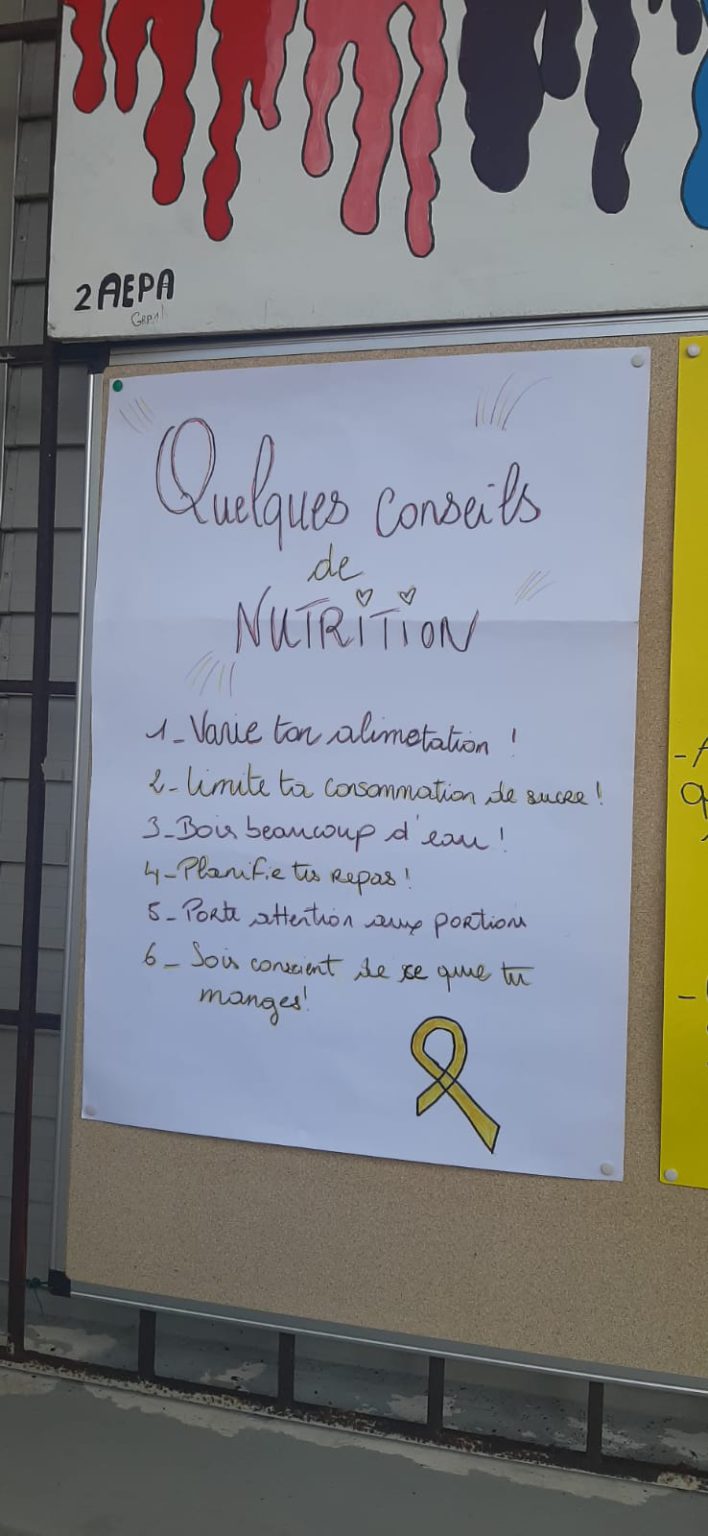 2AEPA
GRP1
Quelques conseils
de
NUTRITION
1- Varie ton alimetation !
2- limite ta consommation de sucre !
3- Bois beaucoup d'eau !
4- Planifie tes repas !
5- Porte attention aux portions
6- Sois conscient de ce que tu
manges !